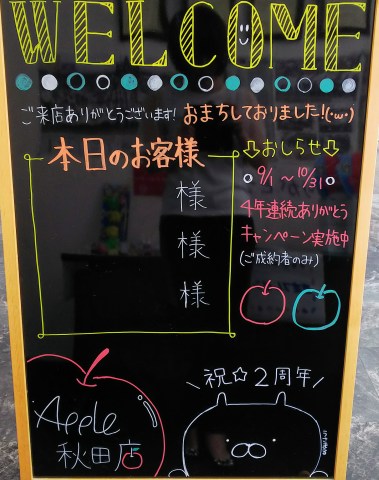 WELCOME
ご来店ありがとうございます! おまちしておりました!(･ω･)
本日のお客様
様
様
様
⇩おしらせ⇩
○9/1 ～ 10/31○
4年連続ありがとう
キャンペーン実施中
(ご成約者のみ)
Apple
秋田店
\祝☆2周年/